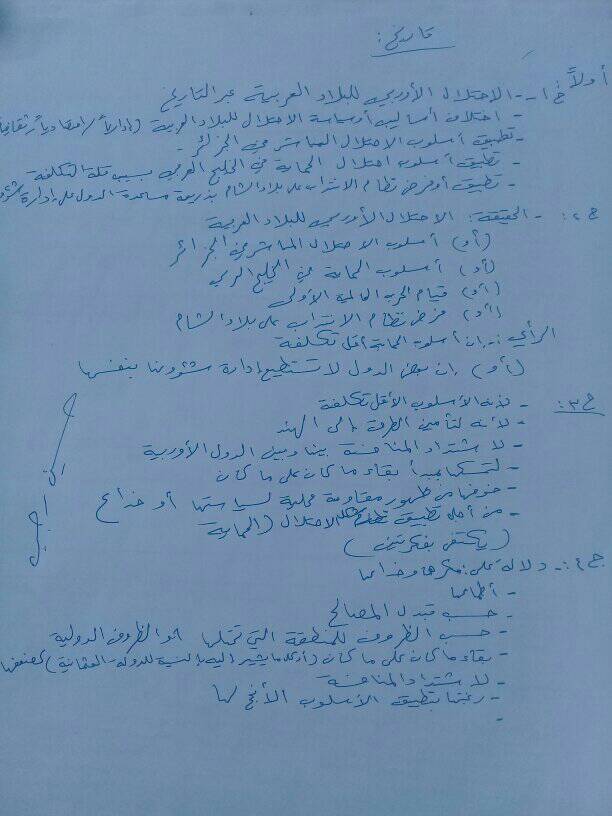 تاريخ :
أولاً
ج١- - الاحتلال الأوربي للبلاد العربية عبر التاريخ
- اختلاف أساليب أو سياسة الاحتلال للبلاد العربية (إدارياً/اقتصادياً/ثقافياً
- تطبيق أسلوب الاحتلال المباشر في الجزائر.
- تطبيق أسلوب احتلال الحماية في الخليج العربي بسبب قلة التكلفة
- تطبيق أو فرض نظام الانتداب على بلاد الشام بذريعة مساعدة الدول على إدارة شؤو
ج٢: - الحقيقة: الاحتلال الأوربي للبلاد العربية
(أو) أسلوب الاحتلال المباشر في الجزائر
(أو) أسلوب الحماية في الخليج العربي
(أو) قيام الحرب العالمية الأولى
(أو) فرض نظام الانتداب على بلاد الشام
الرأي: إن أسلوب الحماية أقل تكلفة
(أو) إن بعض الدول لا تستطيع إدارة شؤونها بنفسها
ج٣: - لأنه الأسلوب الأقل تكلفة
- لأنه لتأمين الطرق إلى الهند
- لاشتداد المنافسة بينها وبين الدول الأوربية
- لتمسكها بمبدأ بقاء ما كان على ما كان
- خوفها من ظهور مقاومة محلية لسياستها أو خداع
- من أجل تطبيق الاحتلال (الحماية
(يكتفى بفكرتين)
ج٤: - دلالة على مكرها وخداعها
- أطماعها
- حسب تبدل المصالح
- حسب الظروف للمنطقة التي تحتلها أو الظروف الدولية
- بقاء ما كان على ما كان (أو كل ما يشير إليه بالنسبة للدولة العثمانية)
- لاشتداد المنافسة
- رغبتها بتطبيق الأسلوب الأنجح لها
-